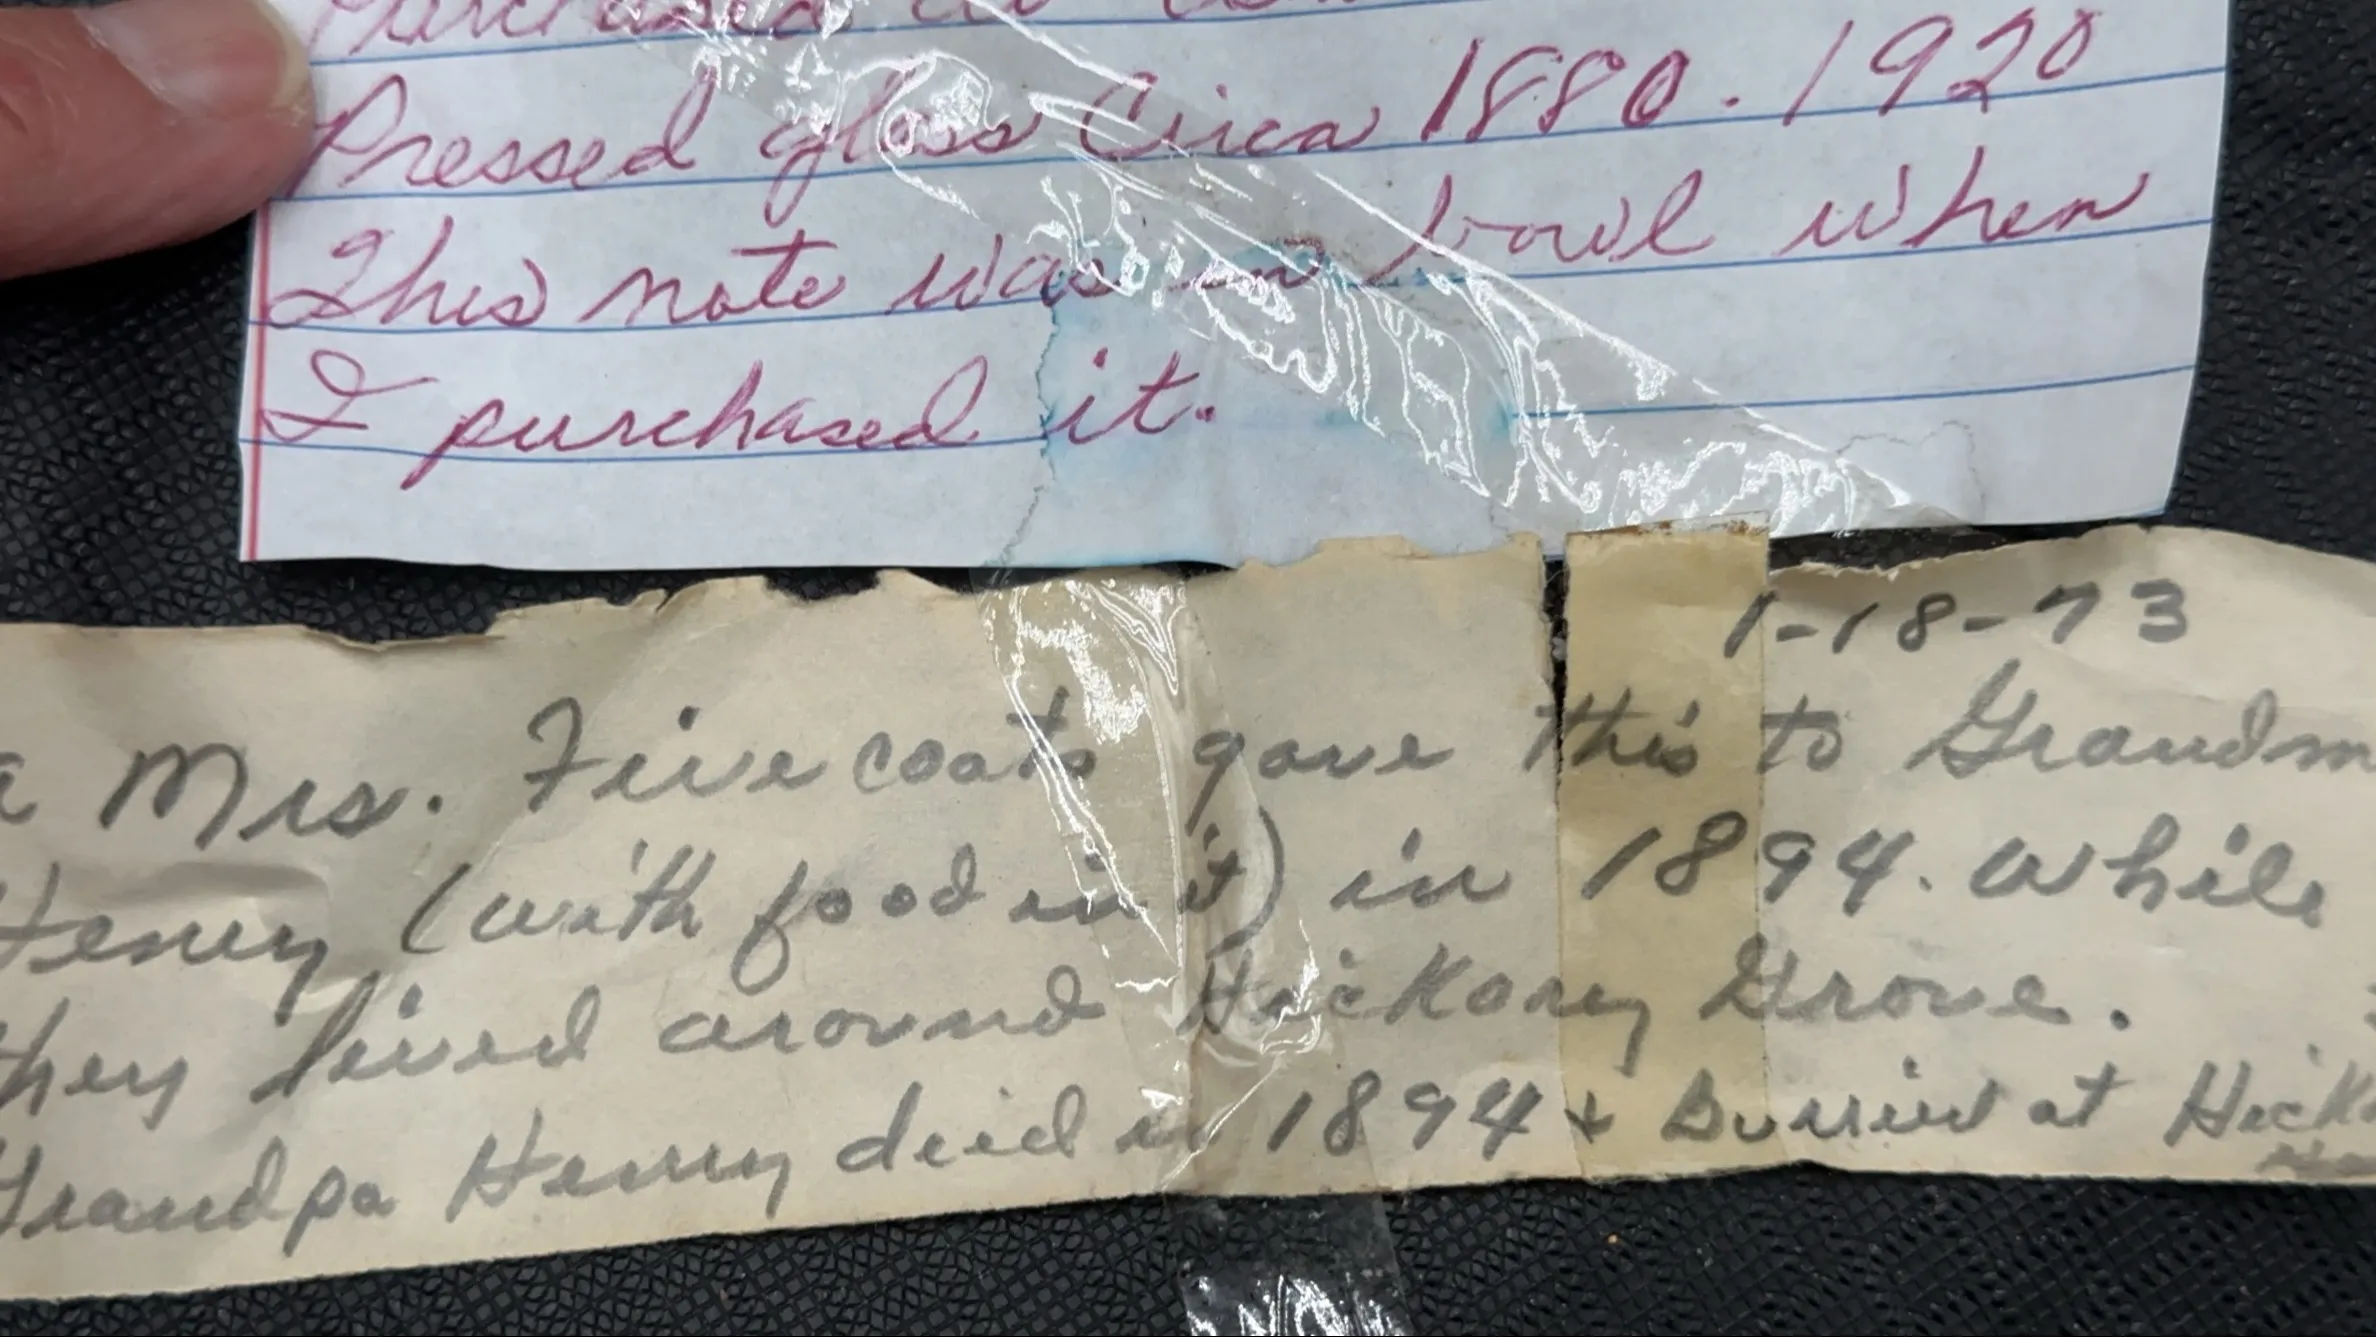 Purchased at
Pressed glass Circa 1880. 1920
This note was in bowl when
I purchased it.
1-18-73
a Mrs. Fivecoats gave this to Grandm
Henry (with food in it) in 1894. While
they lived around Hickory Grove.
Grandpa Henry died in 1894 & Burried at Hick